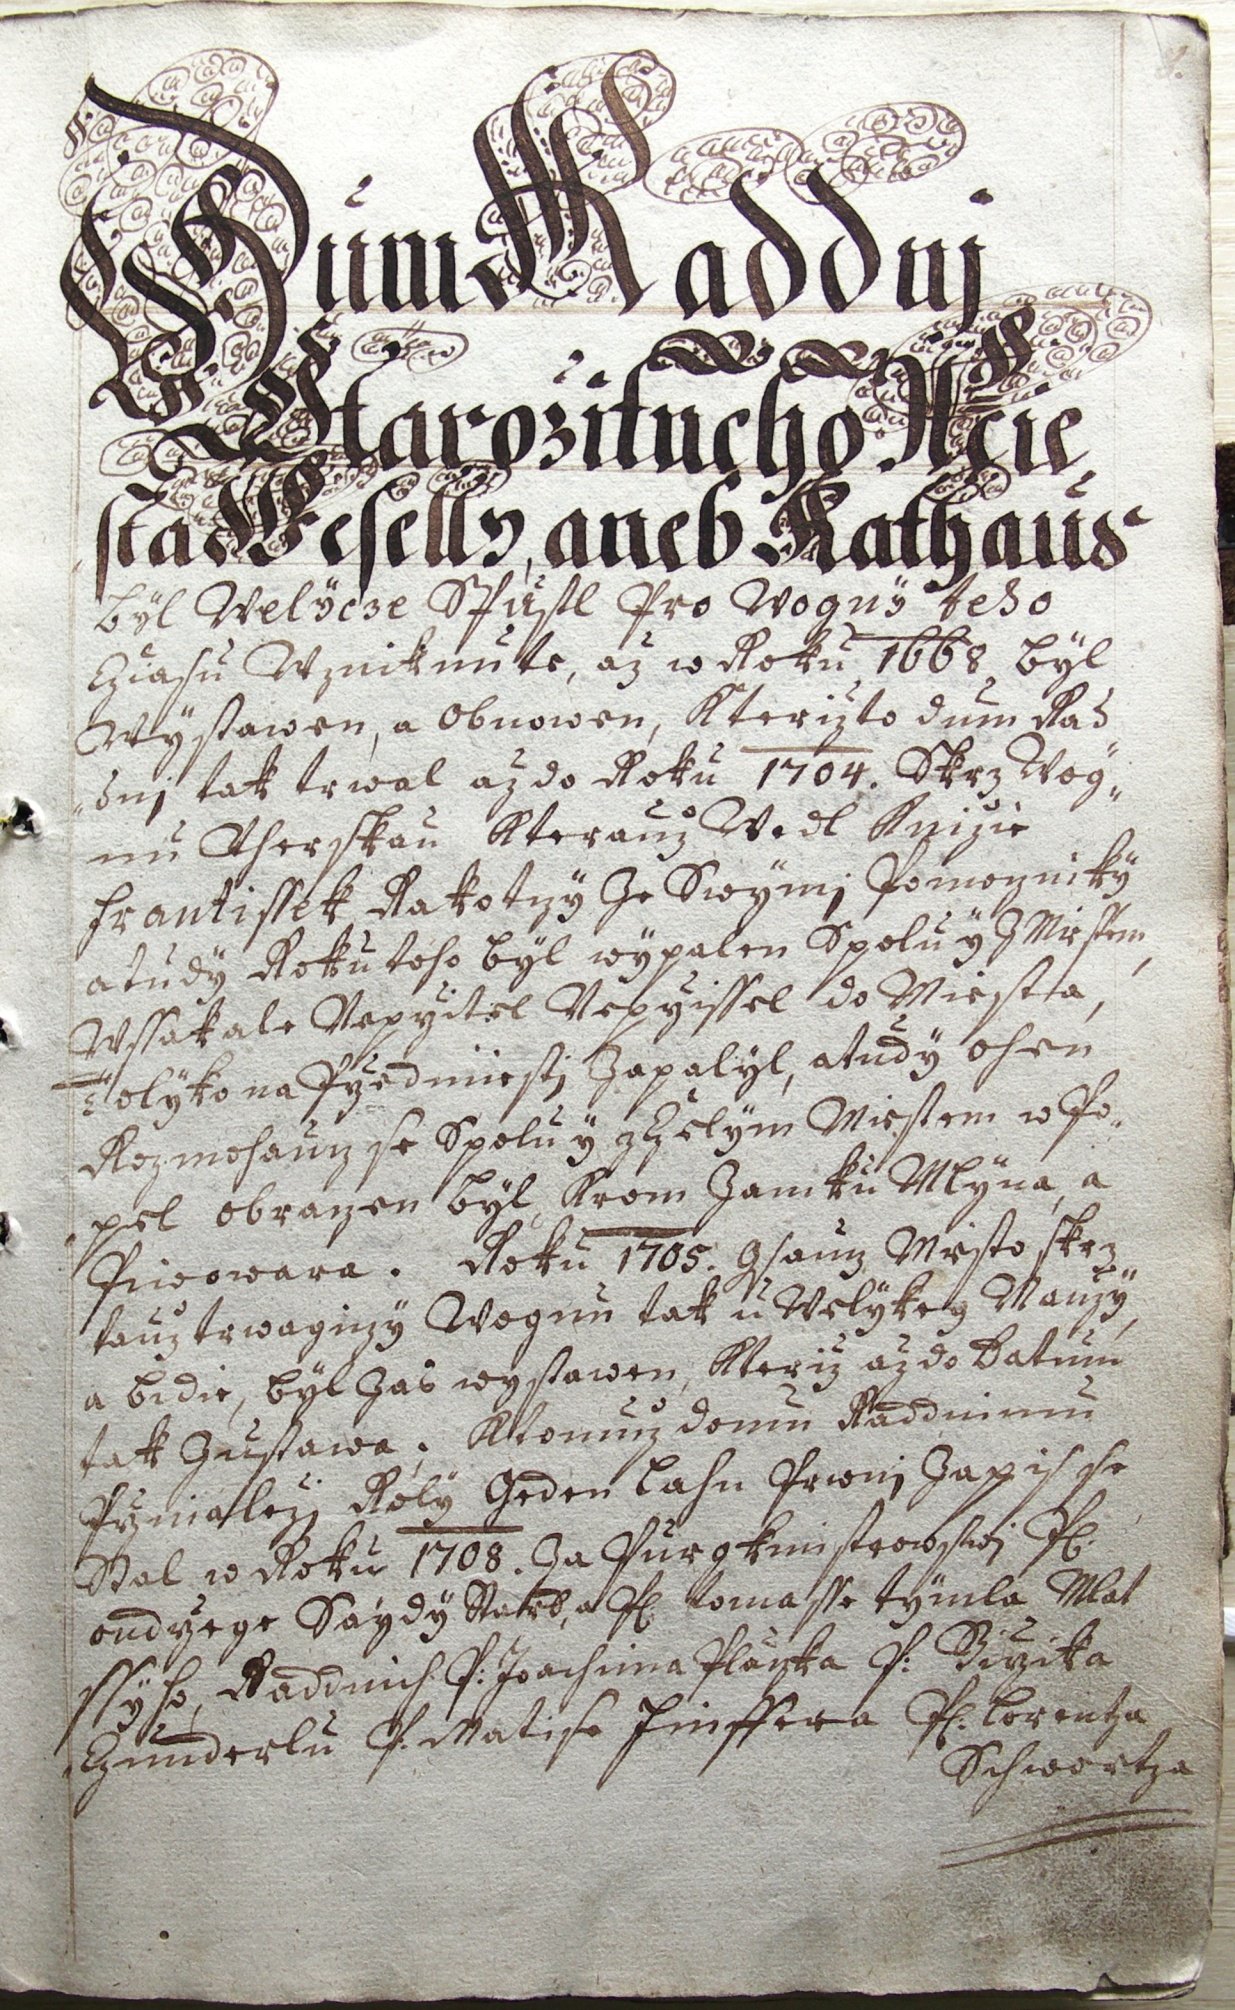 1.
Dům Raddnj
Starožitneho Mie
sta Wesellÿ, aneb Rathaus
bÿl Welÿcze Spustl Pro Wognÿ teho
Cziasu Wzniknute, až w Roku 1668 bÿl
Wÿstawen, a Obnowen, Kterižto dum Rad
dnj tak trwal až do Roku 1704. Skrz Wog„
nu Uherskau Kterauž Wedl Knižie
Frantissek Rakotzÿ Ze Swÿmj Pomocznikÿ
atudÿ Roku toho bÿl wÿpalen Spolu ÿ z Miestem,
Wssak ale Nepržitel Neprzissel do Miesta,
Tolÿko na Przedmiestj Zapalÿl, atudÿ ohen
Rozmohaucz se Spolu ÿ z Czelÿm Miestem w Po„
pel obraczen bÿl, Krom Zamku Mlÿna, a
Piwowara. Roku 1705. Gsaucz Miesto skrz
tauž trwagiczÿ Wognu tak u Welÿkeg Nauzÿ,
a bidie, bÿl Zas wystawen, Kteriž až do Datum
tak Zustawa, Ktomuž domu Raddnimu
Przinaležj Rolÿ Geden Lahn Prwnj Zapis se
Stal w Roku 1708. Za Purgkmistrowstwj P:
ondrzege Saÿdÿ Starss, a P: tomasse tÿmla Mlat
ssÿho, Raddnich P: Joachima Placzka P: Girzika
Czunderlu P: Matiese Hinssera P: Lorentza
Schwortza